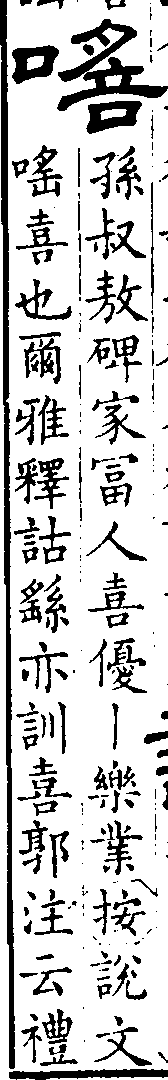 嗂
孫叔敖碑家冨人喜優丨樂業按說文
嗂喜也爾雅釋詁繇亦訓喜郭注云禮